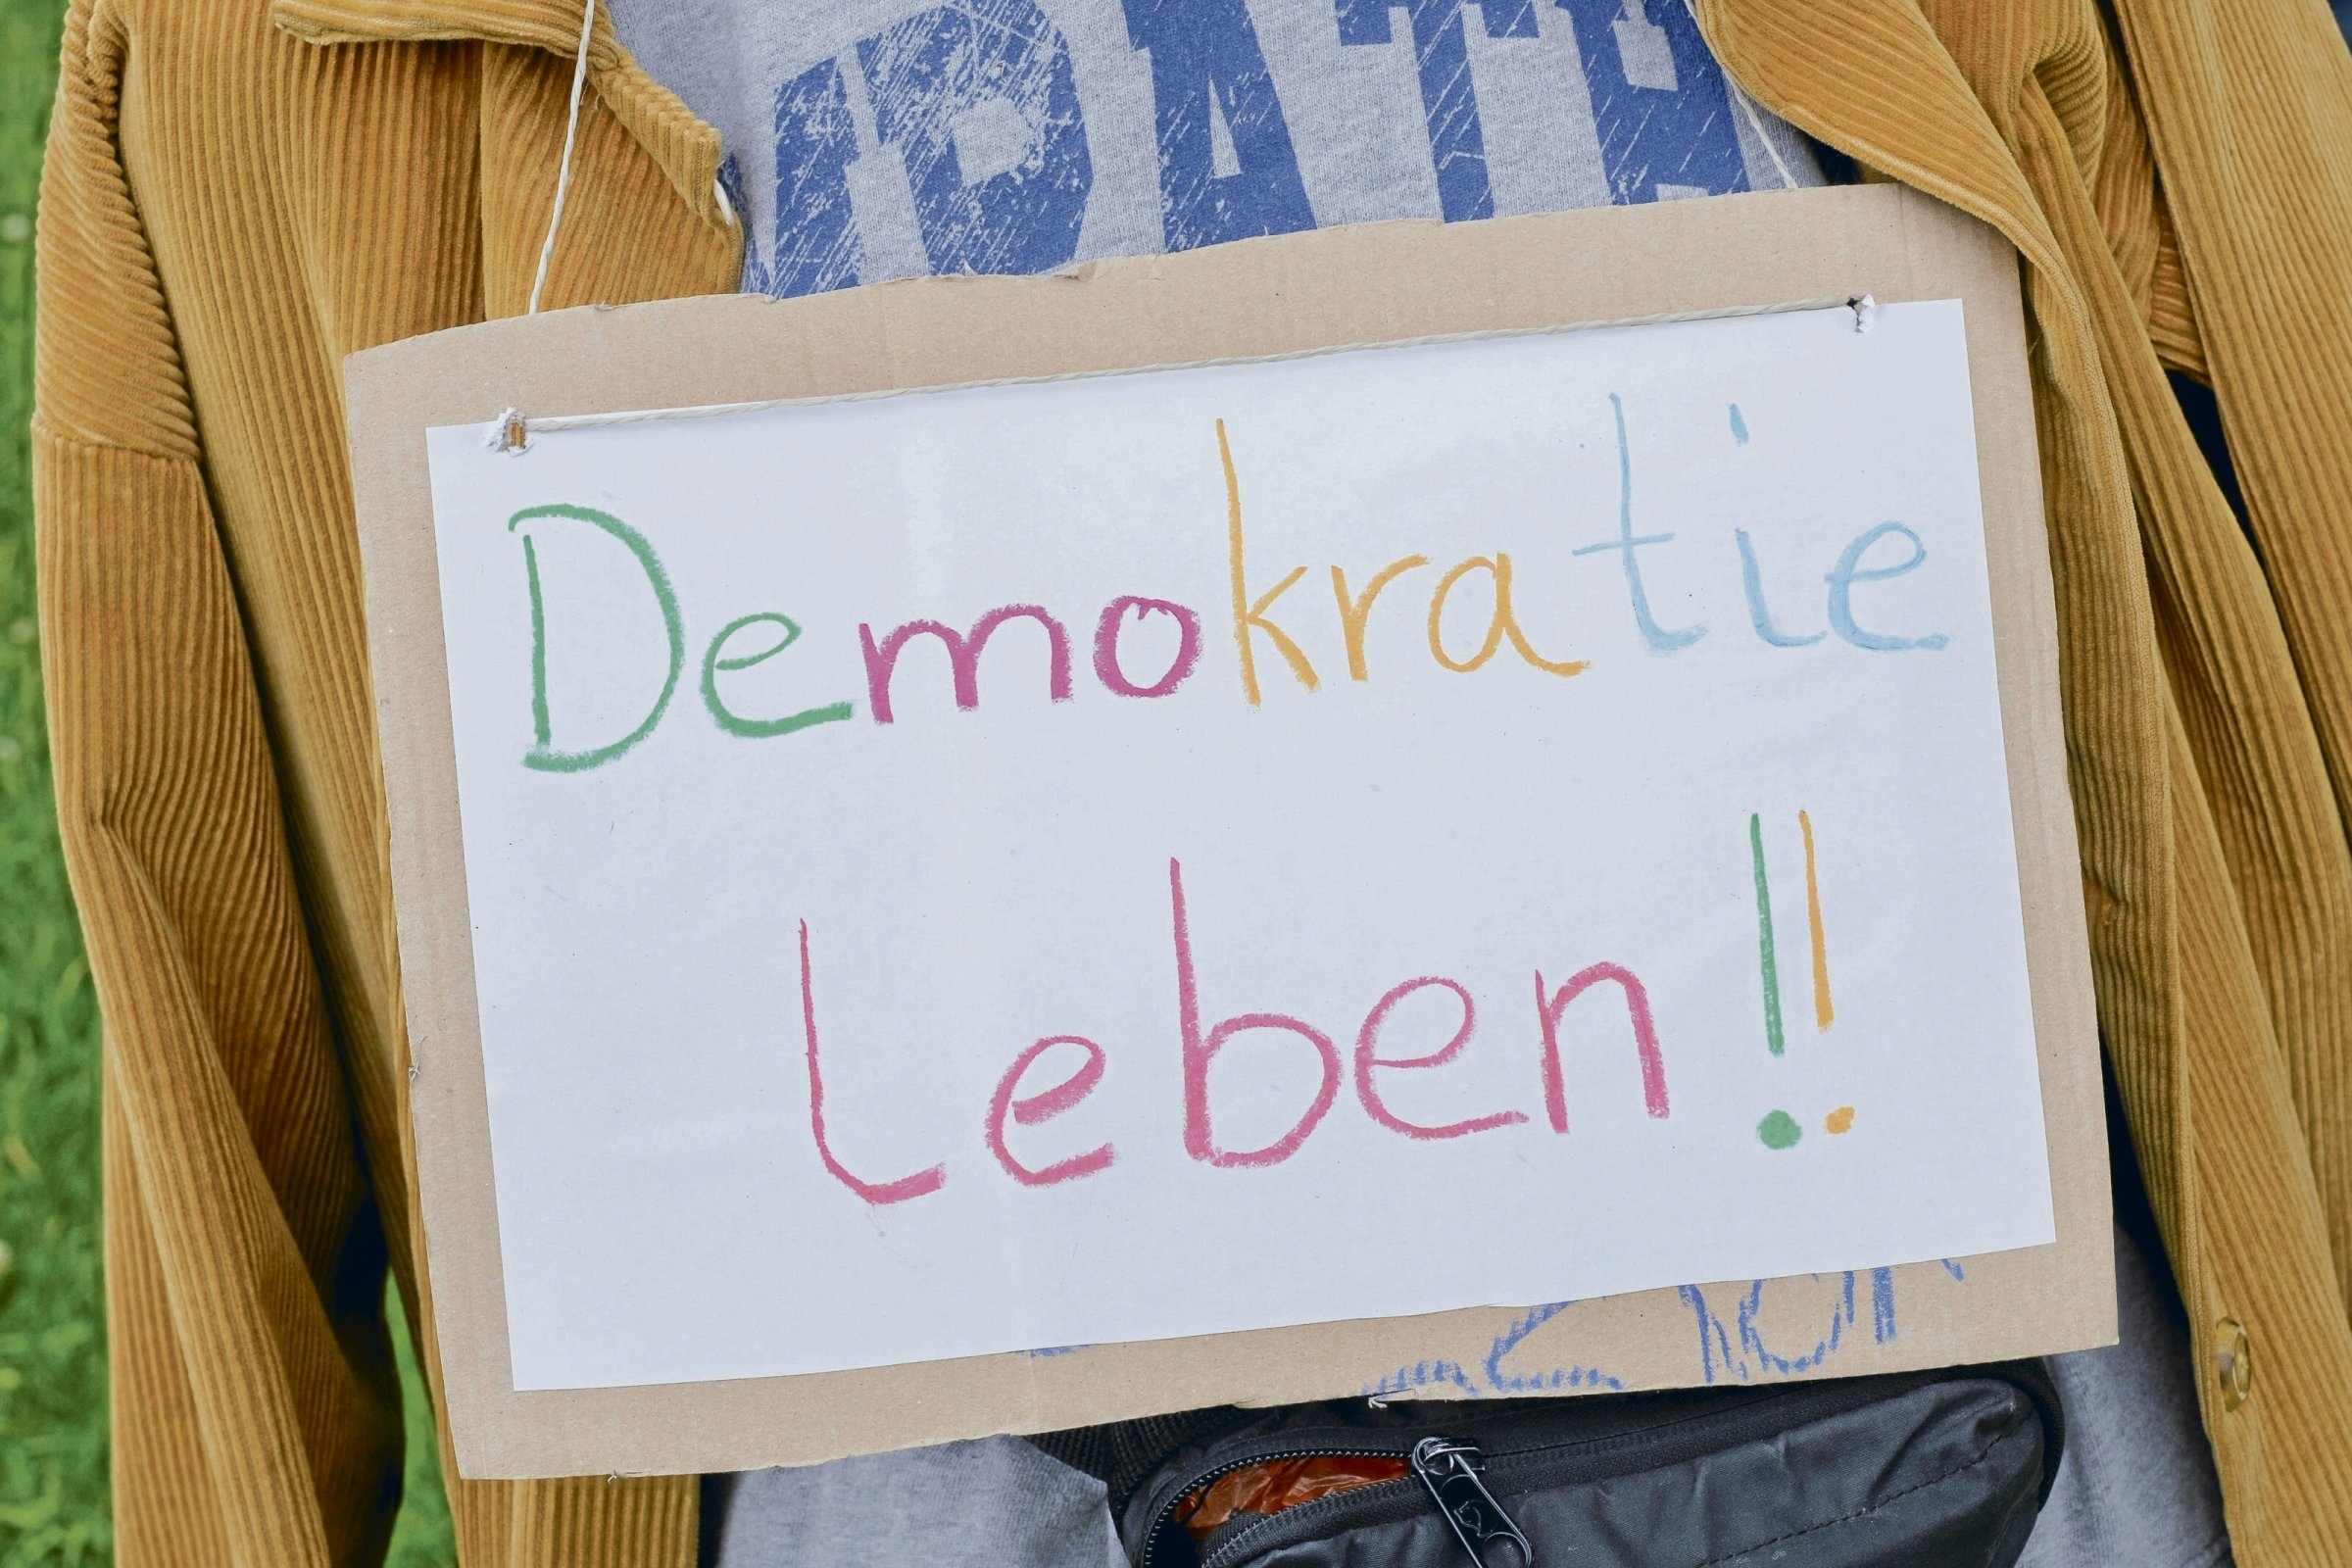 Demokratie
leben!!